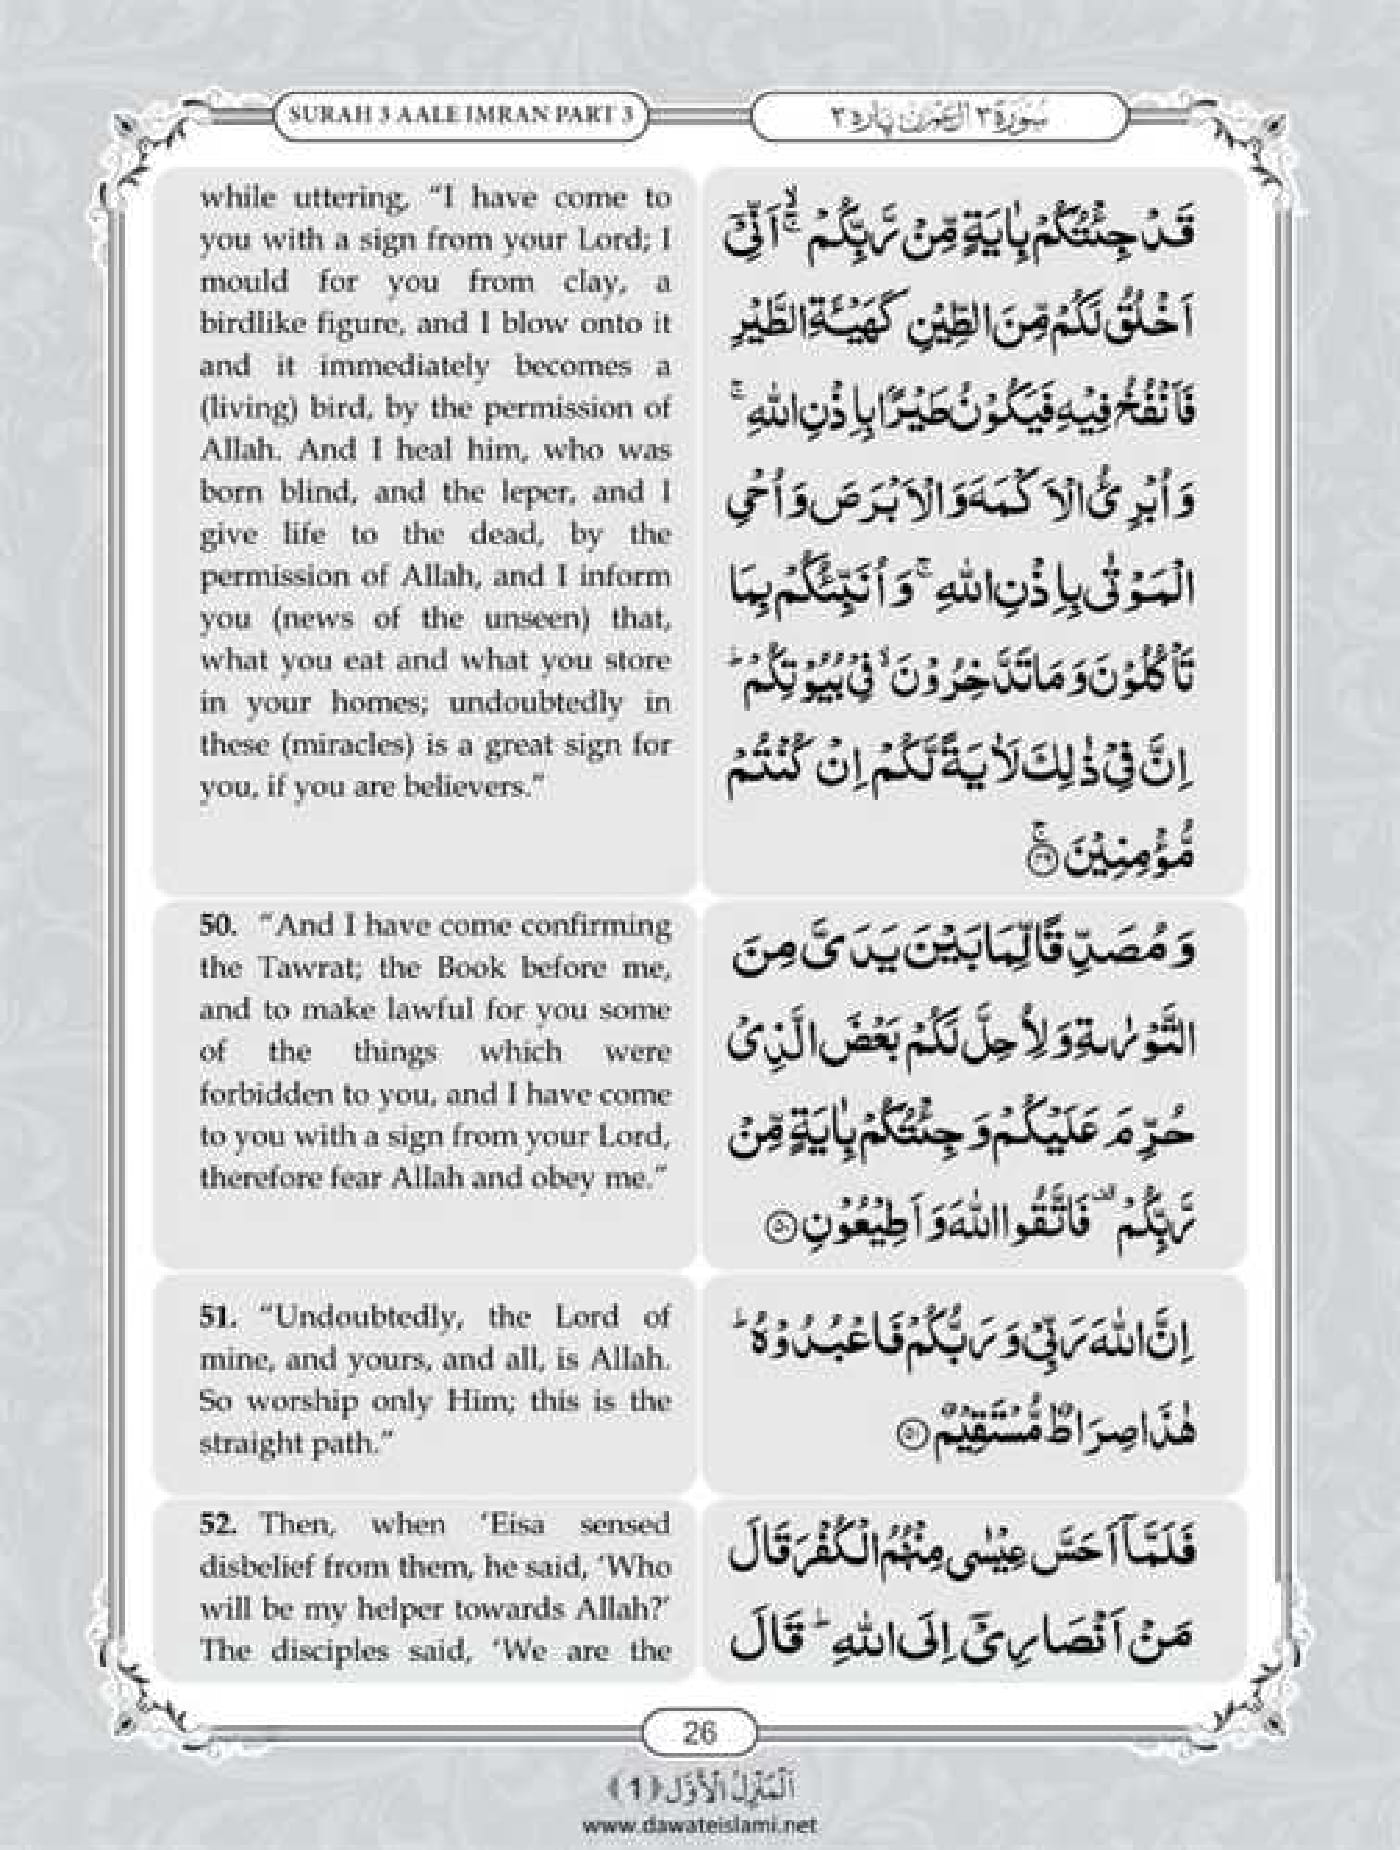 SURAH 3 AALE IMRAN PART 3
سُوْرَة ٣ اٰلِ عِمْرٰن پاره ٣
while uttering, “I have come to
you with a sign from your Lord; I
mould for you from clay, a
birdlike figure, and I blow onto it
and it immediately becomes a
(living) bird, by the permission of
Allah. And I heal him, who was
born blind, and the leper, and I
give life to the dead, by the
permission of Allah, and I inform
you (news of the unseen) that,
what you eat and what you store
in your homes; undoubtedly in
these (miracles) is a great sign for
you, if you are believers.”
قَدْ جِئْتُكُمْ بِاٰيَةٍ مِّنْ رَّبِّكُمْ ۙۚ اَنِّیْۤ
اَخْلُقُ لَكُمْ مِّنَ الطِّیْنِ كَهَیْـَٔةِ الطَّیْرِ
فَاَنْفُخُ فِیْهِ فَیَكُوْنُ طَیْرًۢا بِاِذْنِ اللّٰهِ ۚ
وَ اُبْرِئُ الْاَكْمَهَ وَ الْاَبْرَصَ وَ اُحْیِ
الْمَوْتٰى بِاِذْنِ اللّٰهِ ۚ وَ اُنَبِّئُكُمْ بِمَا
تَاْكُلُوْنَ وَ مَا تَدَّخِرُوْنَ ۙ فِیْ بُیُوْتِكُمْ ؕ
اِنَّ فِیْ ذٰلِكَ لَاٰیَةً لَّكُمْ اِنْ كُنْتُمْ
مُّؤْمِنِیْنَ ۚ ﴿٤٩﴾
50. “And I have come confirming
the Tawrat; the Book before me,
and to make lawful for you some
of the things which were
forbidden to you, and I have come
to you with a sign from your Lord,
therefore fear Allah and obey me.”
وَ مُصَدِّقًا لِّمَا بَیْنَ یَدَیَّ مِنَ
التَّوْرٰىةِ وَ لِاُحِلَّ لَكُمْ بَعْضَ الَّذِیْ
حُرِّمَ عَلَیْكُمْ وَ جِئْتُكُمْ بِاٰیَةٍ مِّنْ
رَّبِّكُمْ ۫ فَاتَّقُوا اللّٰهَ وَ اَطِیْعُوْنِ ﴿٥٠﴾
51. “Undoubtedly, the Lord of
mine, and yours, and all, is Allah.
So worship only Him; this is the
straight path.”
اِنَّ اللّٰهَ رَبِّیْ وَ رَبُّكُمْ فَاعْبُدُوْهُ ؕ
هٰذَا صِرَاطٌ مُّسْتَقِیْمٌ ﴿٥١﴾
52. Then, when ‘Eisa sensed
disbelief from them, he said, ‘Who
will be my helper towards Allah?’
The disciples said, ‘We are the
فَلَمَّاۤ اَحَسَّ عِیْسٰى مِنْهُمُ الْكُفْرَ قَالَ
مَنْ اَنْصَارِیْۤ اِلَى اللّٰهِ ؕ قَالَ
26
اَلْمَنْزِلُ الْاَوَّل ﴿1﴾
www.dawateislami.net